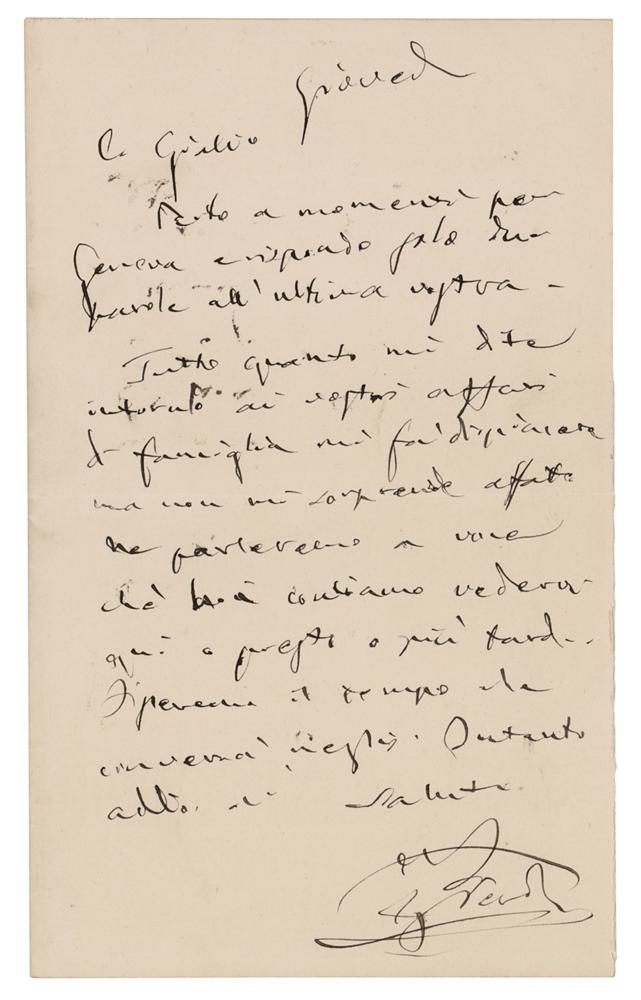 Giovedi
C. Giulio
Parto a momenti per
Genova e rispondo solo due
parole all'ultima vostra -
Tutto quanto mi dite
intorno ai vostri affari
di famiglia mi fa dispiacere
ma non mi sorprende affatto
ne parleremo a voce
chè noi contiamo vedervi
qui o presto o più tardi.
Speremo il tempo che
converrà meglio. Intanto
addio.
Saluti
G Verdi